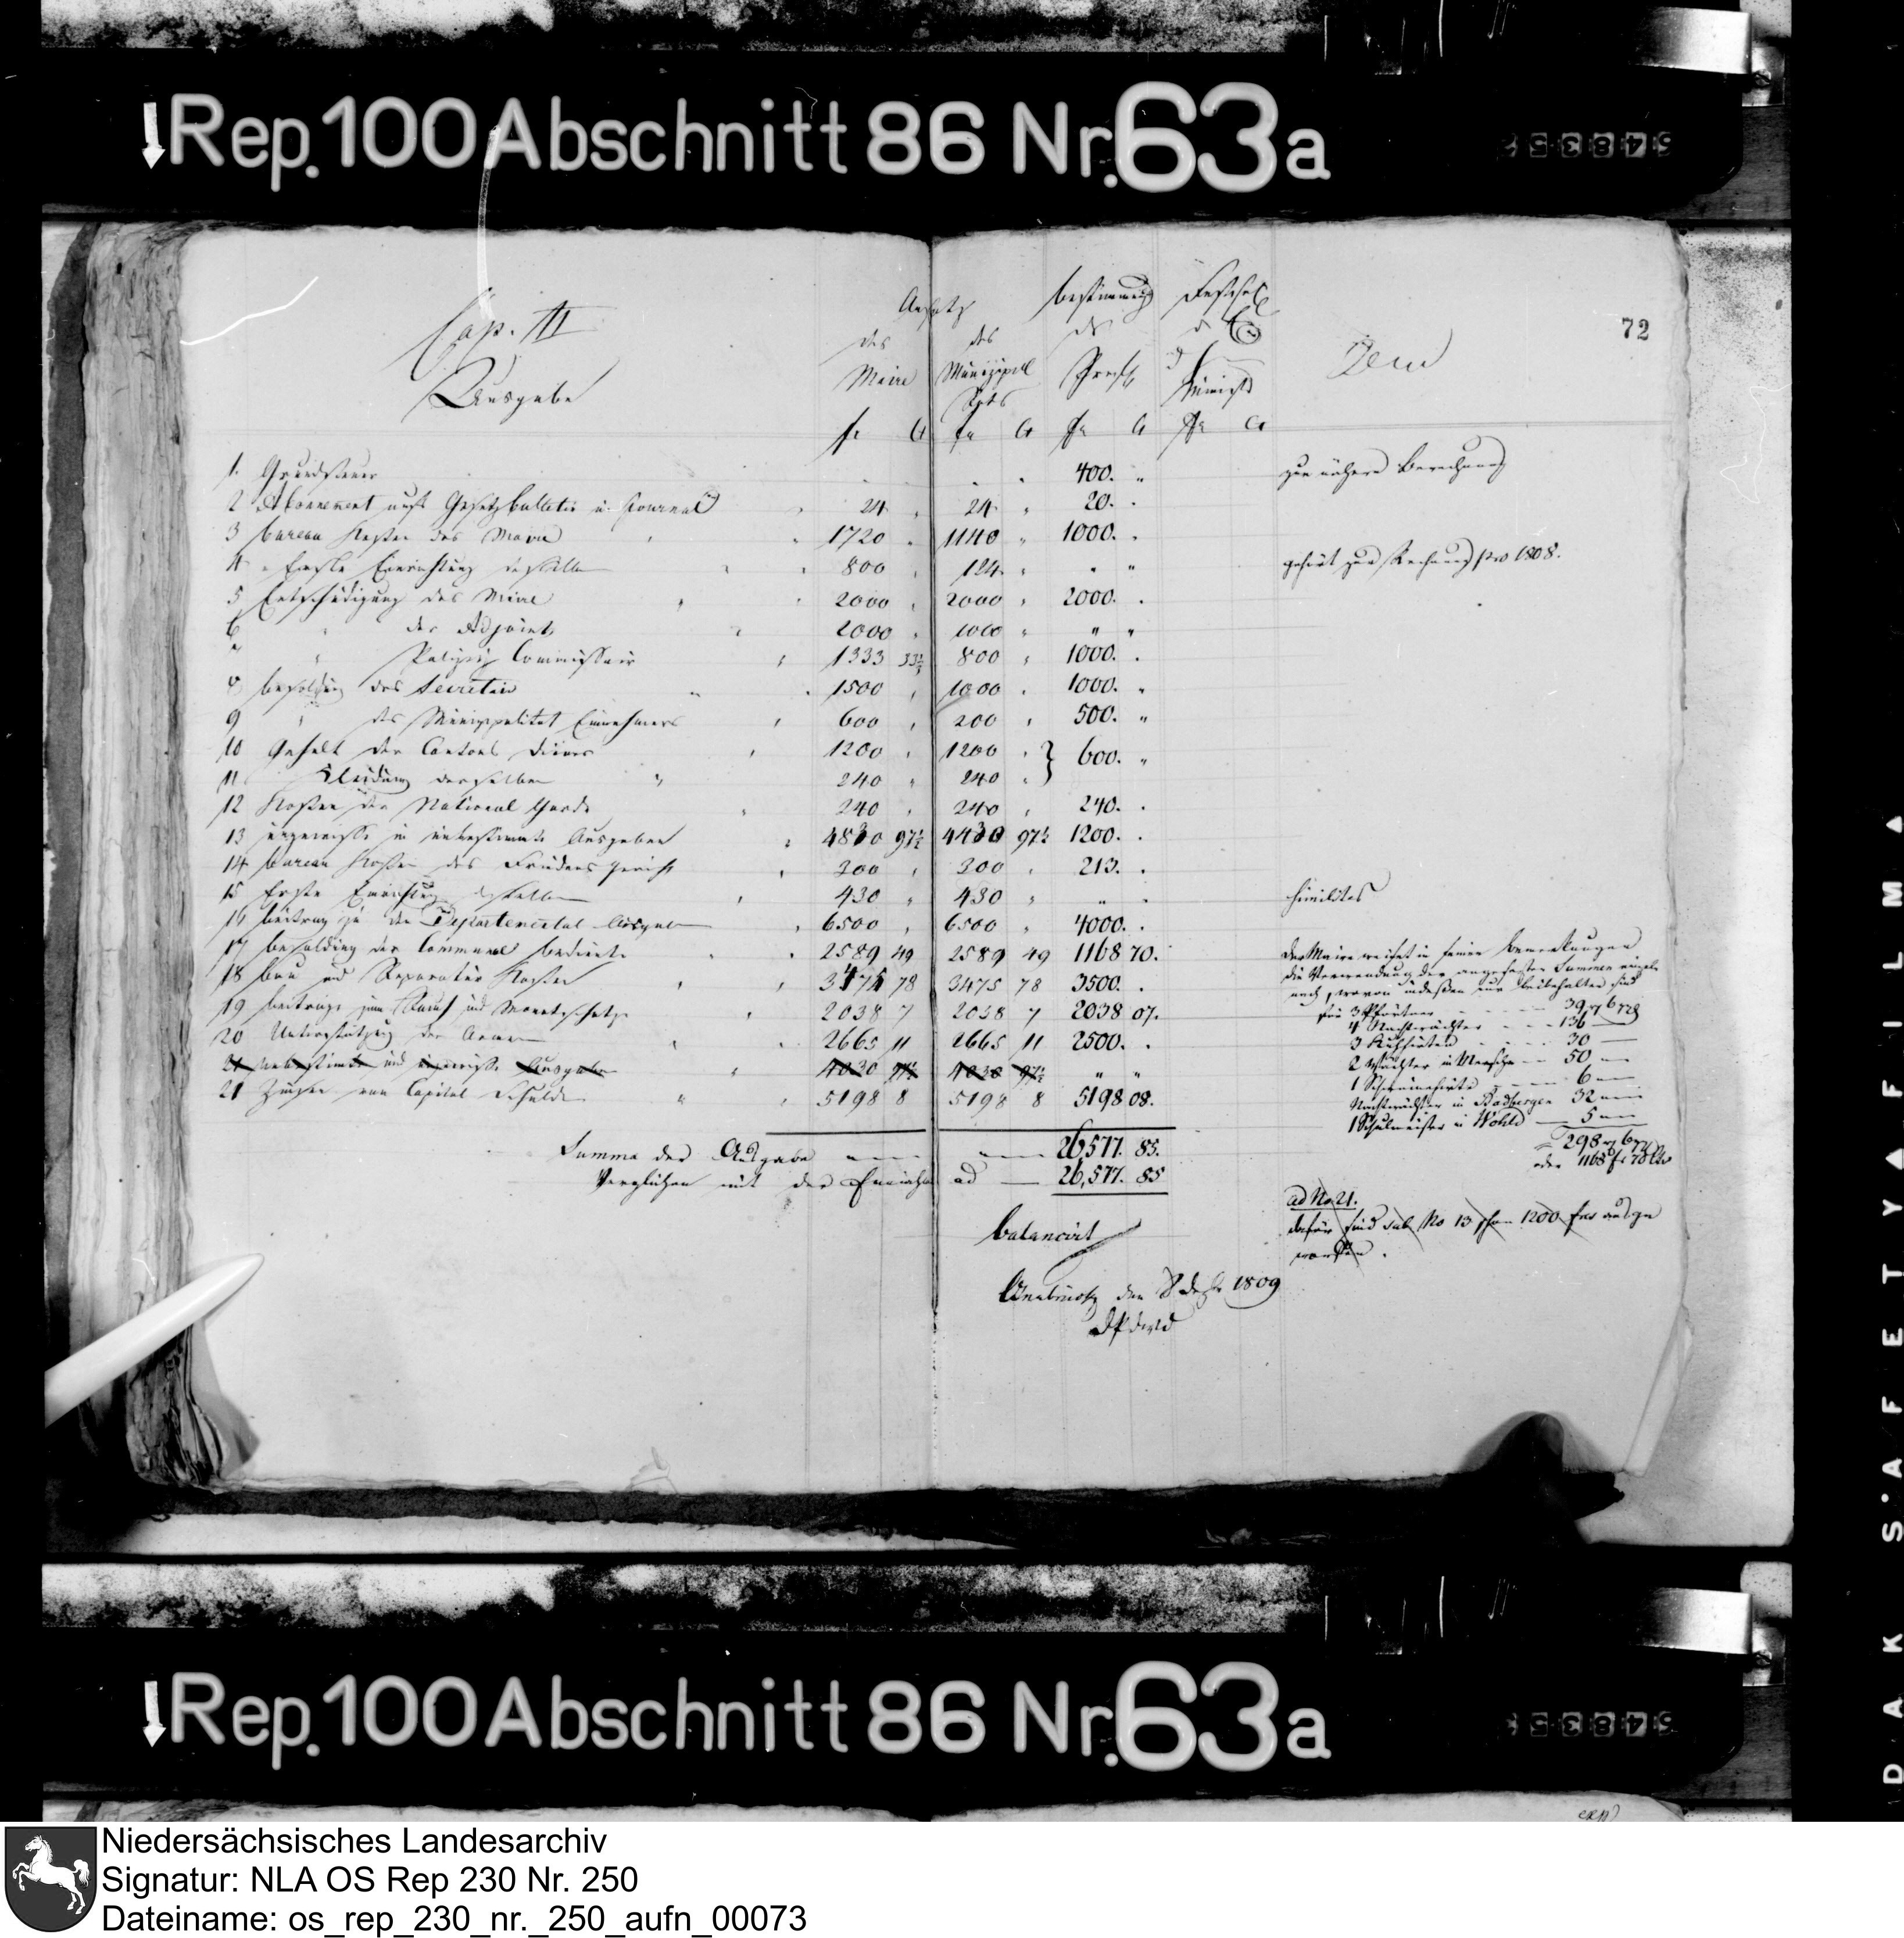 Rep. 100 Abschnitt 86 Nr. 63a
72
Cap. II
Ausgabe
Ansatz
des Maire
des Municipal
Bestimmung
des
Praef
fr Ct fr Ct fr Ct fr Ct
1. Grundsteuer 400. "
zur nähern Berechnung
2 Abonnement aufs Gesetzbulletin u. Journal 24 24 20.
3 Bureau Kosten des Maire 1720 1140 1000.
4 " Erste Einrichtung desselben 800 124 " "
gehört zur Rechnung pro 1808.
5 Entschädigung des Maire 2000 2000 2000.
6 " der Adjoint 2000 1000 " "
" " Polizey Commissair 1333 33⅓ 800 1000.
8 Besoldung des Secretair 1500 1000 1000.
9 " des Municipalitet Einnehmers 600 200 500. "
10 Gehalt der Cantons Diener 1200 1200 } 600. "
11 Kleidung derselben 240 240
12 Kosten der National Garde 240 240 240.
13 ungewisse u unbestimmte Ausgaben 4830 97½ 4430 97½ 1200.
14 Bureau Kosten des Friedens Gericht 300 300 213.
15 Erste Einrichtung desselben 430 430 " "
similiter
16 Beitrag zu den Departemental Ausgaben 6500 6500 4000.
17 Besoldung der Communal Bediente 2589 49 2589 49 1168 70.
18 Bau und Reparatur Kosten 3475 78 3475 78 3500.
19 Beitrage zum und 2038 7 2038 7 2038 07.
20 Unterstützung der Armen 2665 11 2665 11 2500.
21 unbestimte und ungewisse Ausgaben 4030 97½ 4030 97½ " "
21 Zinsen von Capital Schulden 5198 8 5198 8 5198 08.
Der Maire weiset in seinen Bemerkungen
die Verwendung der angesetzten Summen einzeln
nach, wovon indessen nur beibehalten sind
für 3 Pförtner 39
4 Nachtwächter 136
3 Kuhhirten 30
2 Wächter in 50
1 Schweinehirte 6
Nachtwächter in Badbergen 32
1 Schulmeister in Wohld 5
298
oder 1168 fr 70 Ct
Summa der Ausgabe 26,577. 85.
Verglichen mit der Einnahme ad 26,577. 85
balancirt
ad No 21.
dafür sind sub No 13 schon 1200 frs ausge
worfen.
Osnabrück den 8 1809
Niedersächsisches Landesarchiv
Signatur: NLA OS Rep 230 Nr. 250
Dateiname: os_rep_230_nr._250_aufn_00073
Rep. 100 Abschnitt 86 Nr. 63a
DAK SAFETY FILM